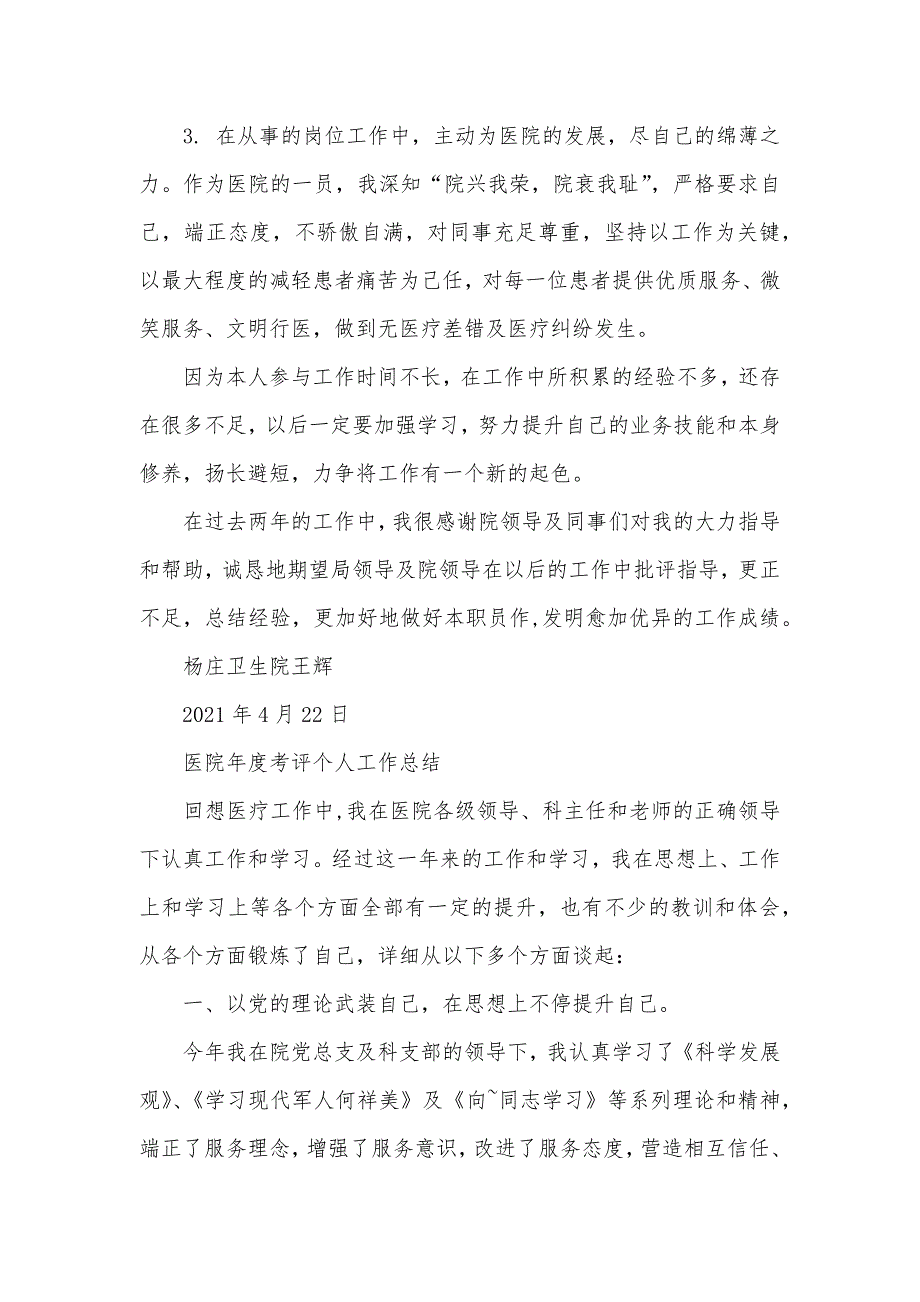 3. 在从事的岗位工作中，主动为医院的发展，尽自己的绵薄之
力。作为医院的一员，我深知“院兴我荣，院衰我耻”，严格要求自
己，端正态度，不骄傲自满，对同事充足尊重，坚持以工作为关键，
以最大程度的减轻患者痛苦为己任，对每一位患者提供优质服务、微
笑服务、文明行医，做到无医疗差错及医疗纠纷发生。
因为本人参与工作时间不长，在工作中所积累的经验不多，还存
在很多不足，以后一定要加强学习，努力提升自己的业务技能和本身
修养，扬长避短，力争将工作有一个新的起色。
在过去两年的工作中，我很感谢院领导及同事们对我的大力指导
和帮助，诚恳地期望局领导及院领导在以后的工作中批评指导，更正
不足，总结经验，更加好地做好本职员作,发明愈加优异的工作成绩。
杨庄卫生院王辉
2021 年 4 月 22 日
医院年度考评个人工作总结
回想医疗工作中,我在医院各级领导、科主任和老师的正确领导
下认真工作和学习。经过这一年来的工作和学习，我在思想上、工作
上和学习上等各个方面全部有一定的提升，也有不少的教训和体会，
从各个方面锻炼了自己，详细从以下多个方面谈起：
一、以党的理论武装自己，在思想上不停提升自己。
今年我在院党总支及科支部的领导下，我认真学习了《科学发展
观》、《学习现代军人何祥美》及《向~同志学习》等系列理论和精神，
端正了服务理念，增强了服务意识，改进了服务态度，营造相互信任、